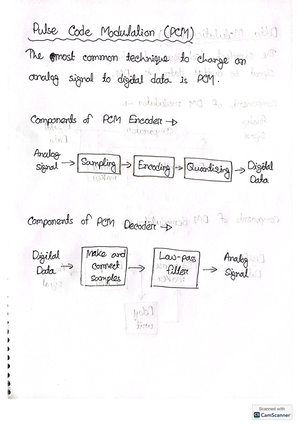 Pulse Code Modulation (PCM)
The most common technique to change an
analog signal to digital data is PCM.
Components of PCM Encoder →
Analog
Signal → Sampling → Encoding → Quantizing → Digital
Data
Components of PCM Decoder →
Digital
Data → Make and
connect
samples → Low-pass
filter → Analog
Signal
Scanned with
CS CamScanner